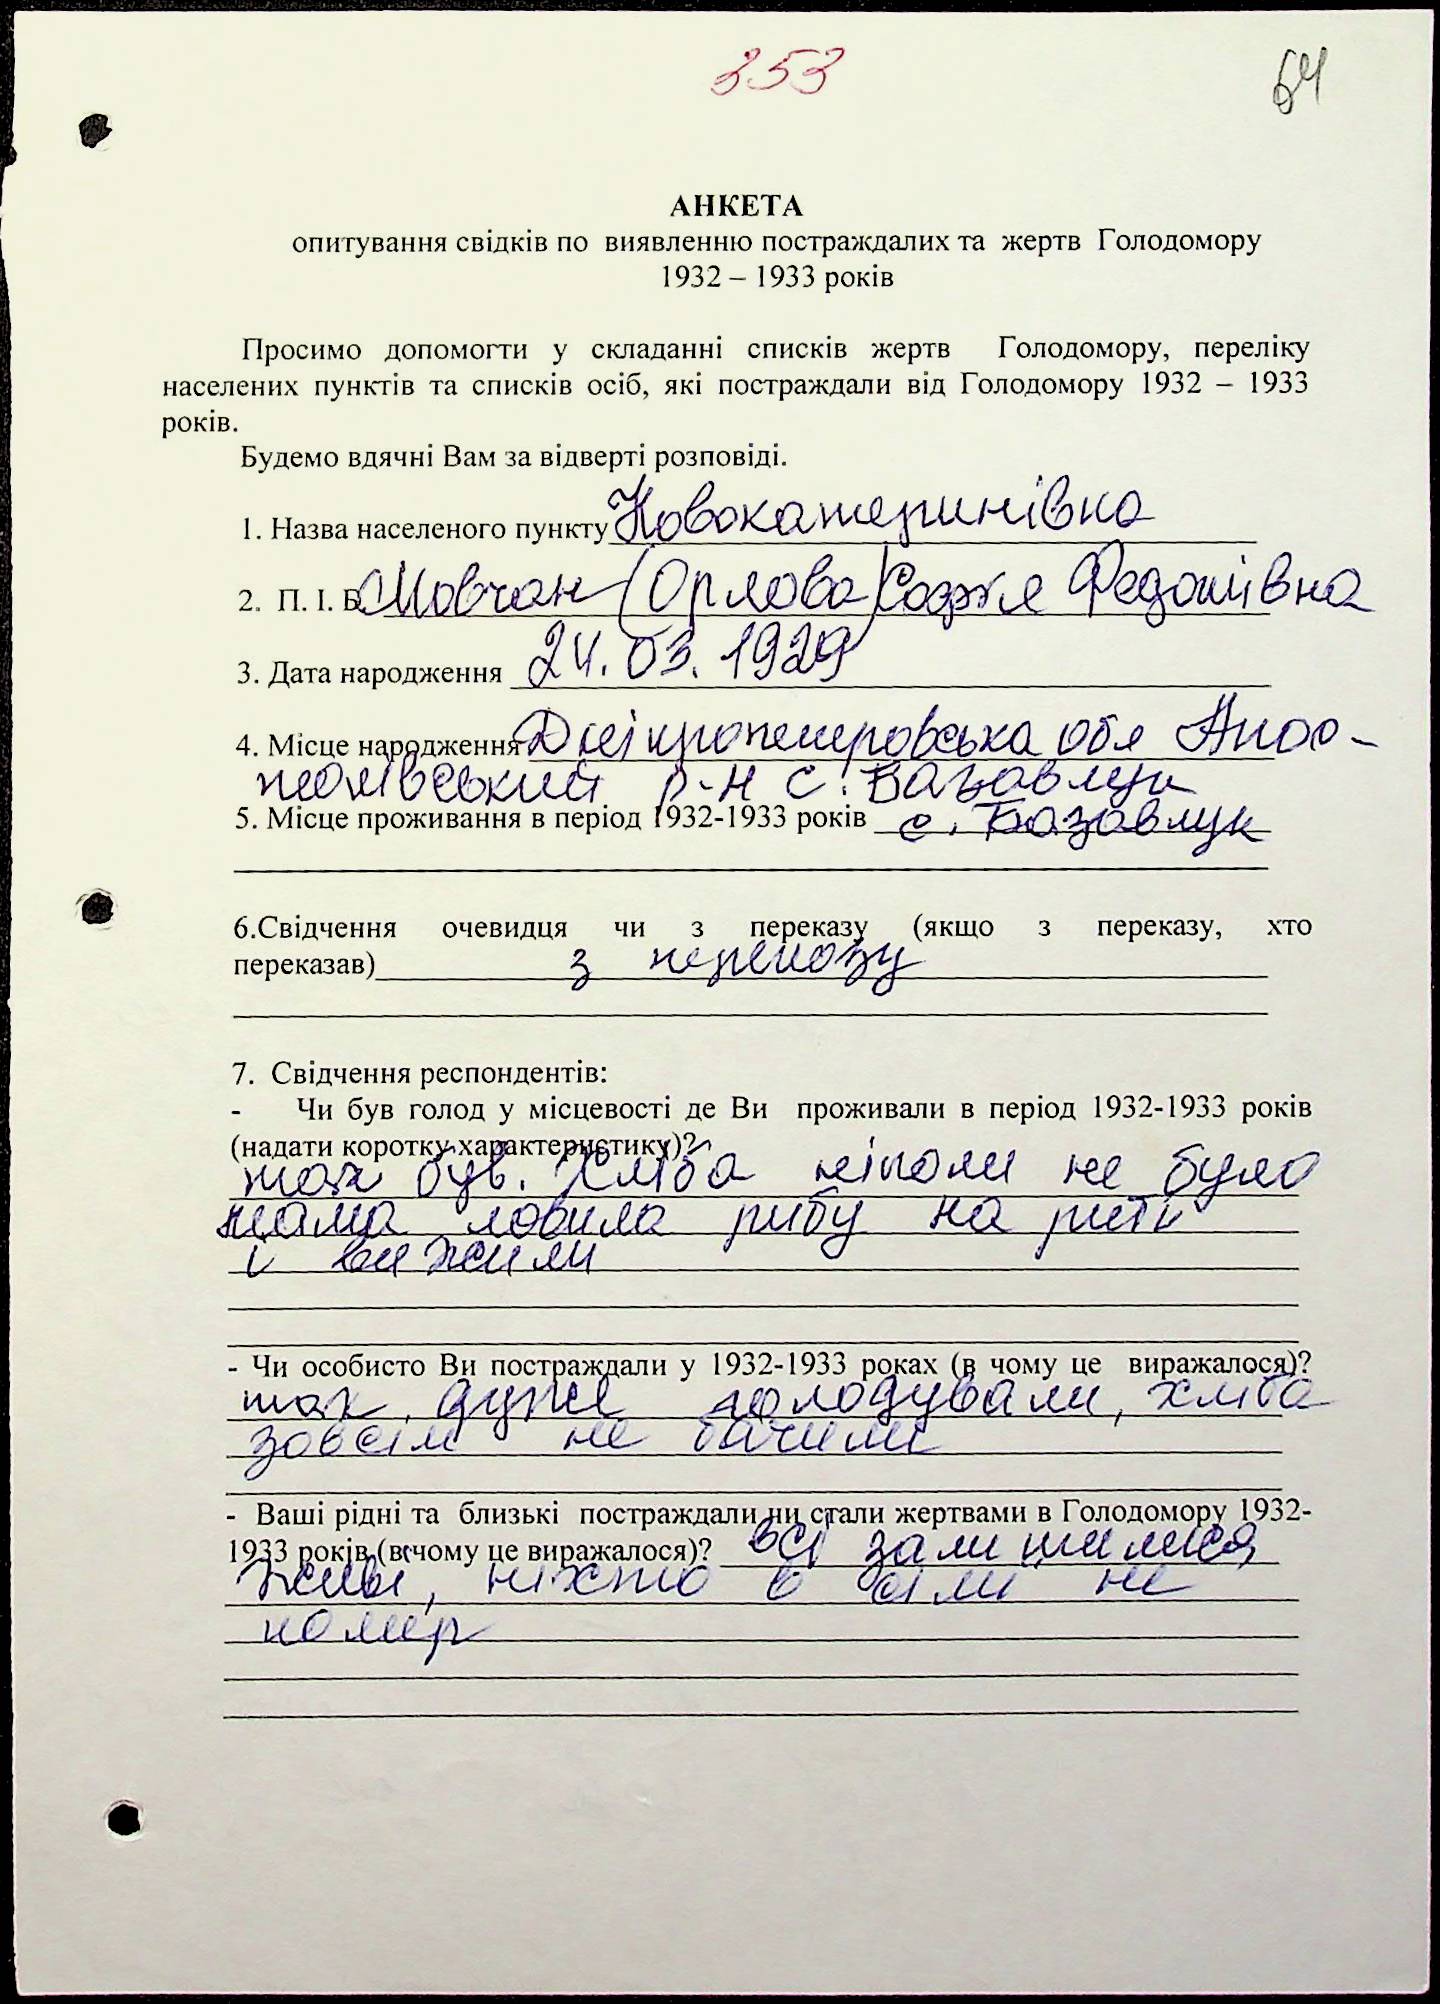 353
64
АНКЕТА
опитування свідків по виявленню постраждалих та жертв Голодомору
1932 – 1933 років
Просимо допомогти у складанні списків жертв Голодомору, переліку
населених пунктів та списків осіб, які постраждали від Голодомору 1932 – 1933
років.
Будемо вдячні Вам за відверті розповіді.
1. Назва населеного пункту Новокатеринівка
2. П. І. Б. Мовчан (Орлова) Софія Федотівна
3. Дата народження 24.03.1929
4. Місце народження Дніпропетровська обл Апос-
толівський р-н с. Базавлук
5. Місце проживання в період 1932-1933 років с. Базавлук
6.Свідчення очевидця чи з переказу (якщо з переказу, хто
переказав) з переказу
7. Свідчення респондентів:
- Чи був голод у місцевості де Ви проживали в період 1932-1933 років
(надати коротку характеристику)?
так був. Хліба ніколи не було
мама ловила рибу на річці
і вижили
- Чи особисто Ви постраждали у 1932-1933 роках (в чому це виражалося)?
так, дуже голодували, хліба
зовсім не бачили
- Ваші рідні та близькі постраждали чи стали жертвами в Голодомору 1932-
1933 років (в чому це виражалося)? всі залишилися
живі, ніхто в сімї не
помер